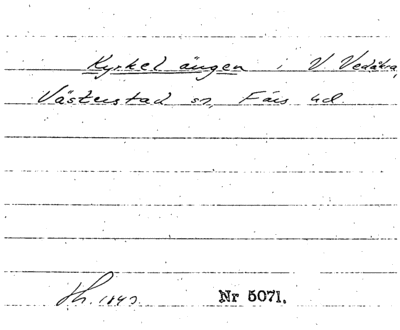 Kyrkel ängen i V Vedåkra,
Västerstad sn, Färs hd.
Th. 1843
Nr 5071.